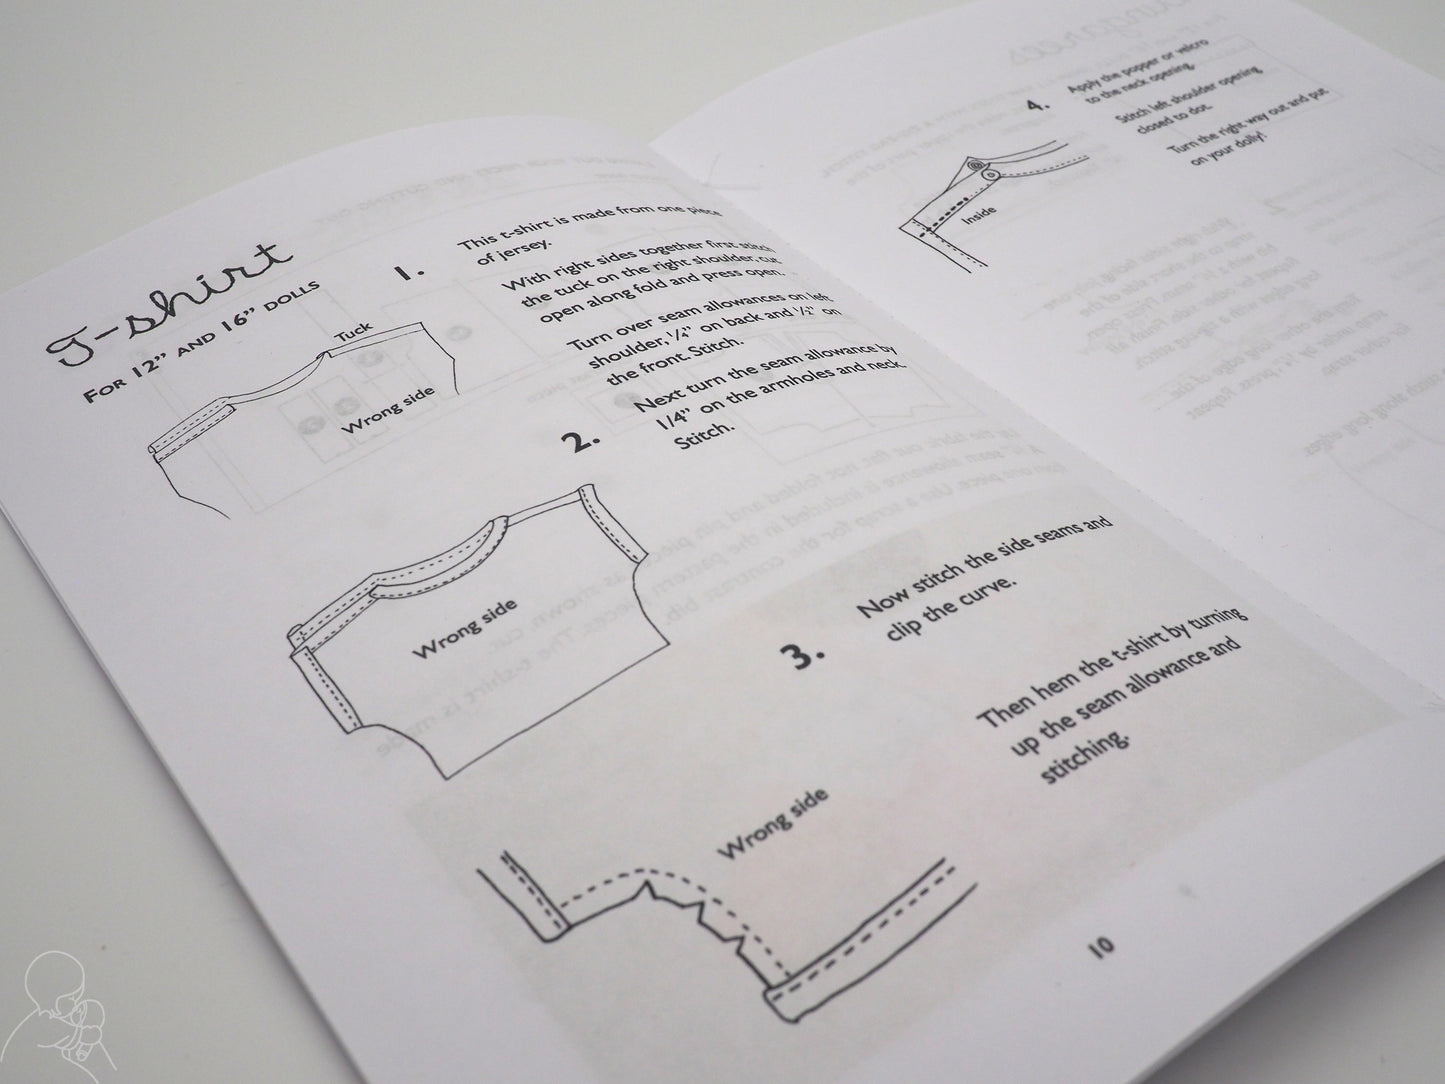 T-shirt
FOR 12" AND 16" DOLLS
Tuck
Wrong side
1.
This t-shirt is made from one piece
of jersey.
With right sides together first stitch
the tuck on the right shoulder, cut
open along fold and press open.
Turn over seam allowances on left
shoulder, 1/4" on back and 1/2" on
the front. Stitch.
2.
Next turn the seam allowance by
1/4" on the armholes and neck.
Stitch.
Wrong side
3.
Now stitch the side seams and
clip the curve.
Then hem the t-shirt by turning
up the seam allowance and
stitching.
Wrong side
10
4.
Apply the popper or velcro
to the neck opening.
Stitch left shoulder opening
closed to dot.
Turn the right way out and put
on your dolly!
Inside